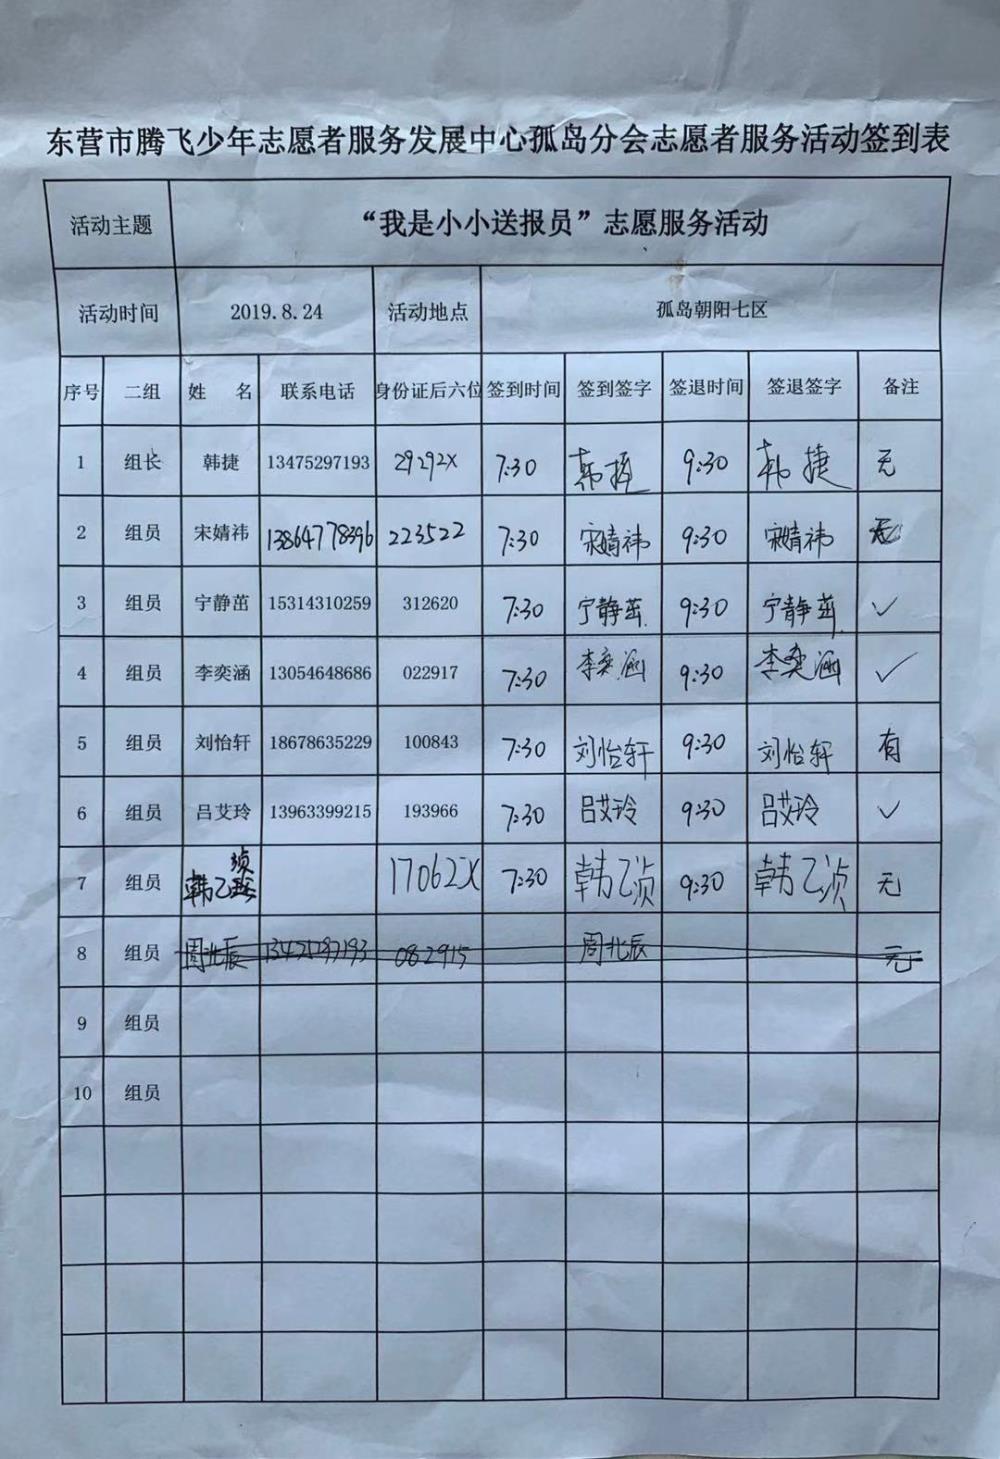 东营市腾飞少年志愿者服务发展中心孤岛分会志愿者服务活动签到表
活动主题 “我是小小送报员”志愿服务活动
活动时间 2019.8.24 活动地点 孤岛朝阳七区
序号 二组 姓 名 联系电话 身份证后六位 签到时间 签到签字 签退时间 签退签字 备注
1 组长 韩捷 13475297193 29292X 7:30 韩捷 9:30 韩捷 无
2 组员 宋婧祎 13864778396 223522 7:30 宋婧祎 9:30 宋婧祎 无
3 组员 宁静茁 15314310259 312620 7:30 宁静茁 9:30 宁静茁 ✓
4 组员 李奕涵 13054648686 022917 7:30 李奕涵 9:30 李奕涵 ✓
5 组员 刘怡轩 18678635229 100843 7:30 刘怡轩 9:30 刘怡轩 有
6 组员 吕艾玲 13963399215 193966 7:30 吕艾玲 9:30 吕艾玲 ✓
7 组员 韩乙浈 17062X 7:30 韩乙浈 9:30 韩乙浈 无
8 组员 周北辰 082915 周北辰 无
9 组员
10 组员